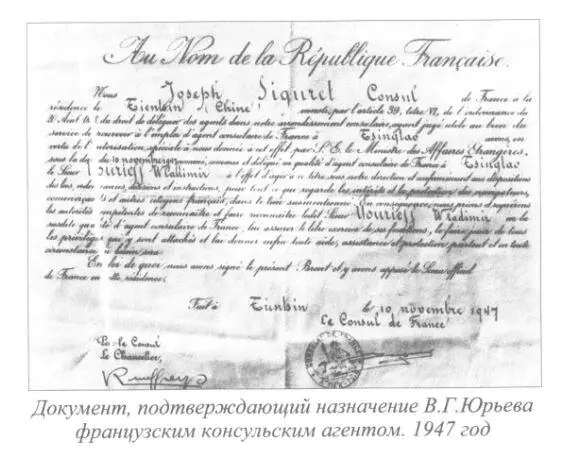 Au Nom de la République Française.
Nous Joseph Siguret Consul de France à la
résidence de Tientsin (Chine) investi, par l'article 39, titre VI, de l'ordonnance du
du droit de déléguer des agents dans notre arrondissement consulaire, ayant jugé utile au bien du
service de pourvoir à l'emploi d'agent consulaire de France à Tsingtao avons, en
vertu de l'autorisation spéciale à nous donnée à cet effet par S. E. le Ministre des Affaires Etrangères,
sous la date du 10 novembre 1947 nommé, commis et délégué en qualité d'agent consulaire de France à Tsingtao
le Sieur Yourieff Wladimir à l'effet d'agir à ce titre sous notre direction et conformément aux dispositions
des lois, ordonnances, décisions et instructions, pour tout ce qui regarde les intérêts et la protection des navigateurs,
commerçants et autres citoyens français, dans le lieu susmentionné. En conséquence, nous prions et requérons
les autorités compétentes de reconnaître et faire reconnaître ledit Sieur Yourieff Wladimir en la
susdite qualité d'agent consulaire de France, lui assurer le libre exercice de ses fonctions, le faire jouir de tous
les privilèges qui y sont attachés et lui donner enfin toute aide, assistance et protection partout et en toute
circonstance où besoin sera.
En foi de quoi, nous avons signé le présent Brevet et y avons apposé le Sceau officiel
de France en cette résidence.
Fait à Tientsin le 10 novembre 1947
Le Consul de France
Par le Consul
Le Chancelier,
Документ, подтверждающий назначение В.Г.Юрьева
французским консульским агентом. 1947 год